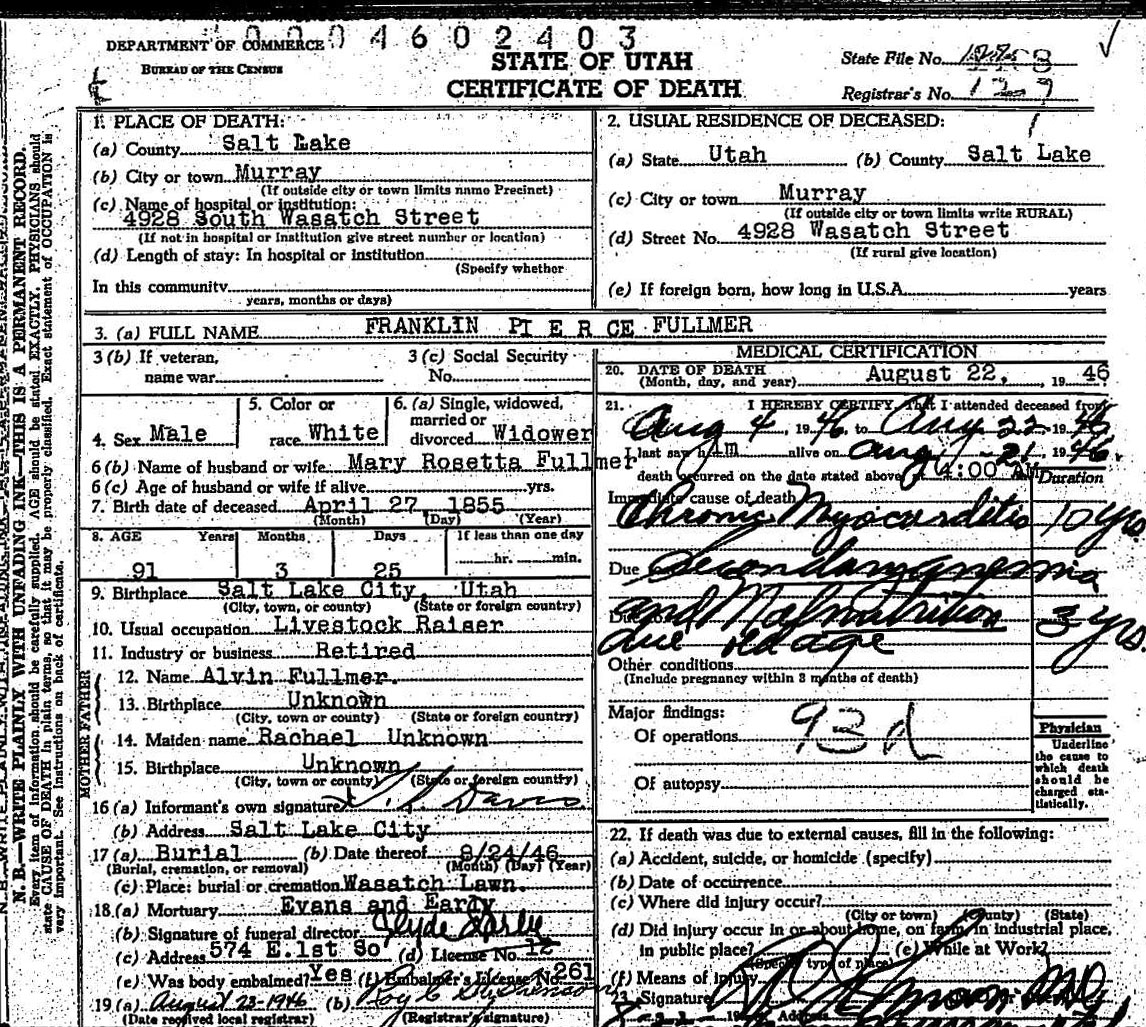 0004602403
DEPARTMENT OF COMMERCE
BUREAU OF THE CENSUS
STATE OF UTAH
CERTIFICATE OF DEATH
State File No.
Registrar's No. 129
1. PLACE OF DEATH:
(a) County Salt Lake
(b) City or town Murray
(If outside city or town limits name Precinct)
(c) Name of hospital or institution:
4928 South Wasatch Street
(If not in hospital or institution give street number or location)
(d) Length of stay: In hospital or institution
(Specify whether
In this community
years, months or days)
2. USUAL RESIDENCE OF DECEASED:
(a) State Utah (b) County Salt Lake
(c) City or town Murray
(If outside city or town limits write RURAL)
(d) Street No. 4928 Wasatch Street
(If rural give location)
(e) If foreign born, how long in U.S.A. years
3. (a) FULL NAME FRANKLIN PIERCE FULLMER
3 (b) If veteran,
name war
3 (c) Social Security
No.
4. Sex Male
5. Color or
race White
6. (a) Single, widowed,
married or
divorced Widower
6 (b) Name of husband or wife Mary Rosetta Fullmer
6 (c) Age of husband or wife if alive yrs.
7. Birth date of deceased April 27 1855
(Month) (Day) (Year)
8. AGE Years Months Days If less than one day
hr. min.
91 3 25
9. Birthplace Salt Lake City, Utah
(City, town, or county) (State or foreign country)
10. Usual occupation Livestock Raiser
11. Industry or business Retired
FATHER
12. Name Alvin Fullmer.
13. Birthplace Unknown
(City, town or county) (State or foreign country)
MOTHER
14. Maiden name Rachael Unknown
15. Birthplace Unknown
(City, town or county) (State or foreign country)
16 (a) Informant's own signature Davis
(b) Address Salt Lake City
17 (a) Burial (b) Date thereof 8/24/46
(Burial, cremation, or removal) (Month) (Day) (Year)
(c) Place: burial or cremation Wasatch Lawn.
18. (a) Mortuary Evans and Early
(b) Signature of funeral director Clyde Early
(c) Address 574 E. 1st So (d) License No. 12
(e) Was body embalmed? Yes (f) Embalmer's License No. 261
19 (a) August 23-1946 (b) Roy C
(Date received local registrar) (Registrar's signature)
MEDICAL CERTIFICATION
20. DATE OF DEATH
(Month, day, and year) August 22, 1946
21. I HEREBY CERTIFY, That I attended deceased from
Aug 4, 1946 to Aug 22, 1946
I last saw him alive on Aug 21, 1946.
death occurred on the date stated above at 4:00 AM
Duration
Immediate cause of death
Chronic Myocarditis 10 yrs
Due to Secondary anemia
Due to and Malnutrition 3 yrs.
due old age
Other conditions
(Include pregnancy within 3 months of death)
Major findings:
Of operations 93d
Of autopsy
Physician
Underline
the cause to
which death
should be
charged sta-
tistically.
22. If death was due to external causes, fill in the following:
(a) Accident, suicide, or homicide (specify)
(b) Date of occurrence
(c) Where did injury occur?
(City or town) (County) (State)
(d) Did injury occur in or about home, on farm, in industrial place,
in public place? (e) While at Work?
(Specify type of place)
(f) Means of injury
23. Signature
Address
N. B.—WRITE PLAINLY WITH UNFADING INK—THIS IS A PERMANENT RECORD.
Every item of information should be carefully supplied. AGE should be stated EXACTLY. PHYSICIANS should
state CAUSE OF DEATH in plain terms, so that it may be properly classified. Exact statement of OCCUPATION is
very important. See instructions on back of certificate.